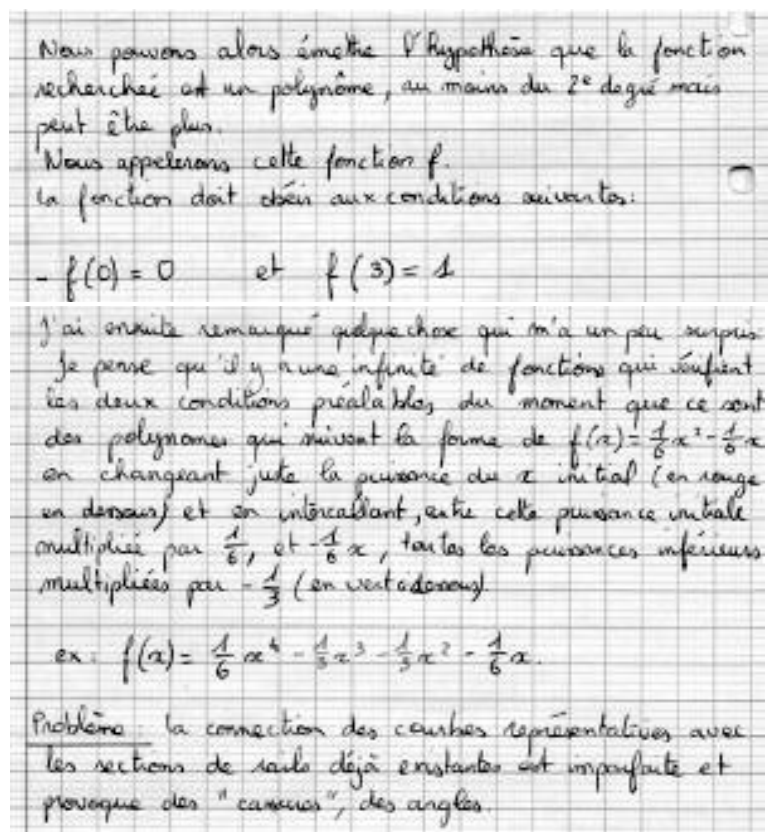 Nous pouvons alors émettre l'hypothèse que la fonction
recherchée est un polynôme, au moins du 2e degré mais
peut être plus.
Nous appelerons cette fonction f.
la fonction doit obéir aux conditions suivantes:
- f(0) = 0 et f(3) = 1
J'ai ensuite remarqué quelque chose qui m'a un peu surpris
Je pense qu'il y a une infinité de fonctions qui vérifient
les deux conditions préalables du moment que ce sont
des polynomes qui suivent la forme de f(x) = 1/6 x² - 1/6 x
en changeant juste la puissance du x initial (en rouge
en dessous) et en intercallant, entre cette puissance initiale
multipliée par 1/6, et -1/6 x, toutes les puissances inférieurs
multipliées par -1/3 (en vert dessous)
ex: f(x) = 1/6 x⁴ - 1/3 x³ - 1/3 x² - 1/6 x.
Problème: la connection des courbes représentatives avec
les sections de rails déjà existantes est imparfaite et
provoque des "cassures", des angles.